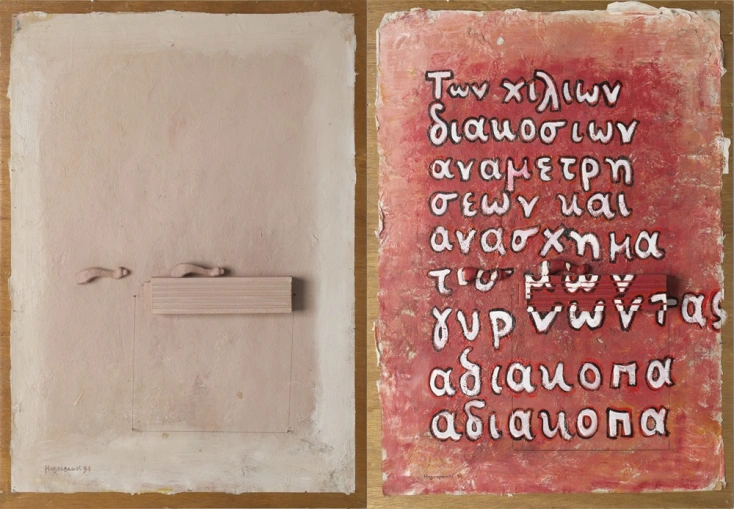 Των χιλιων
διακοσιων
αναμετρη
σεων και
ανασχημα
τισμων
γυρνώντας
αδιακοπα
αδιακοπα